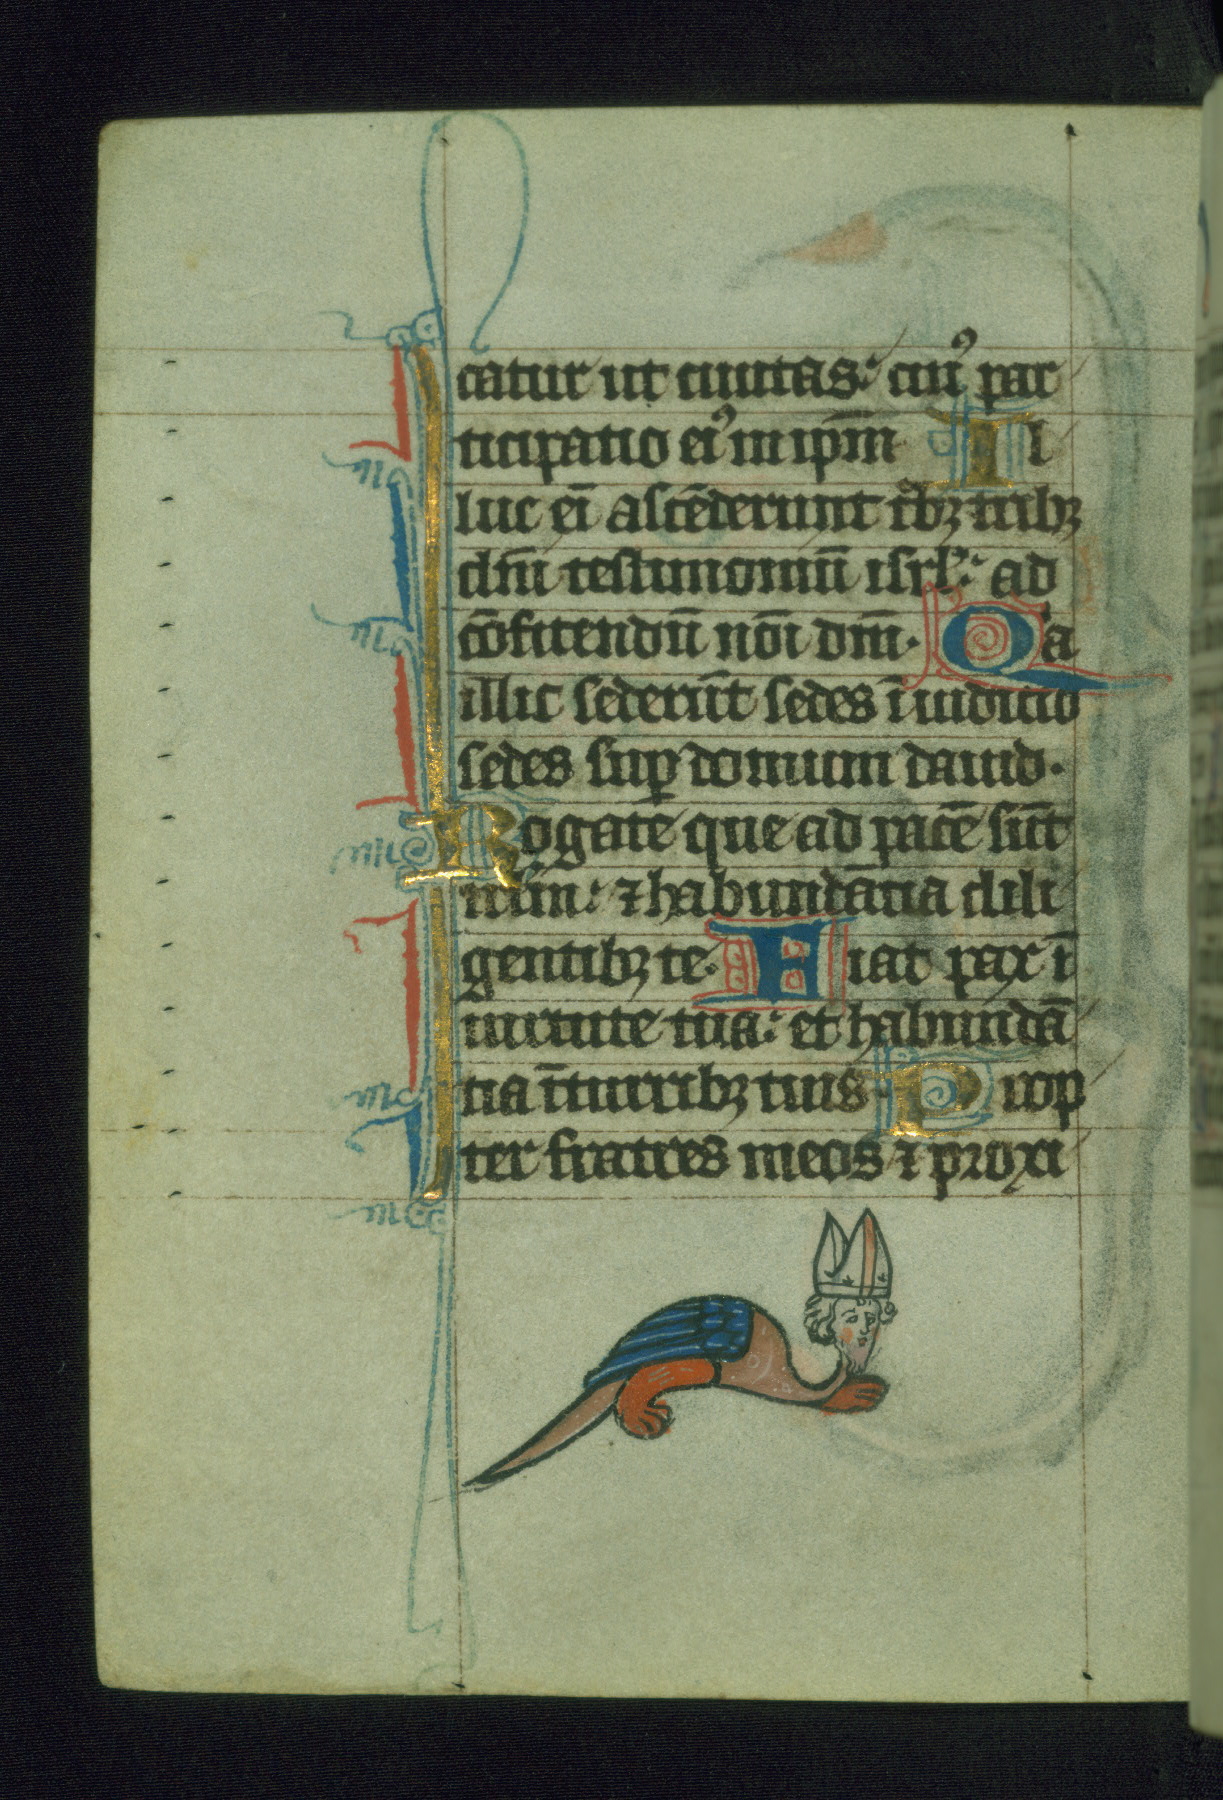 catur ut ciuitas: cui᷒ par
ticipatio ei᷒ in ip̄m Il
luc ei̅ asce̅derunt t͛bꝫ tribꝫ
dn̅i testimoniu̅ isrl̅: ad
co̅fitendu̅ no̅i dn̅i. Qͥa
illic sederu̅t sedes i̅ iudicio
sedes suꝑ domum dauid.
Rogate que ad pace̅ su̅t
irl̅m: ⁊ habunda̅tia dili
gentibꝫ te. Fiat pax i̅
uirtute tua: et habunda̅
tia i̅ turribꝫ tuis Prop
ter fratres meos ⁊ proxi